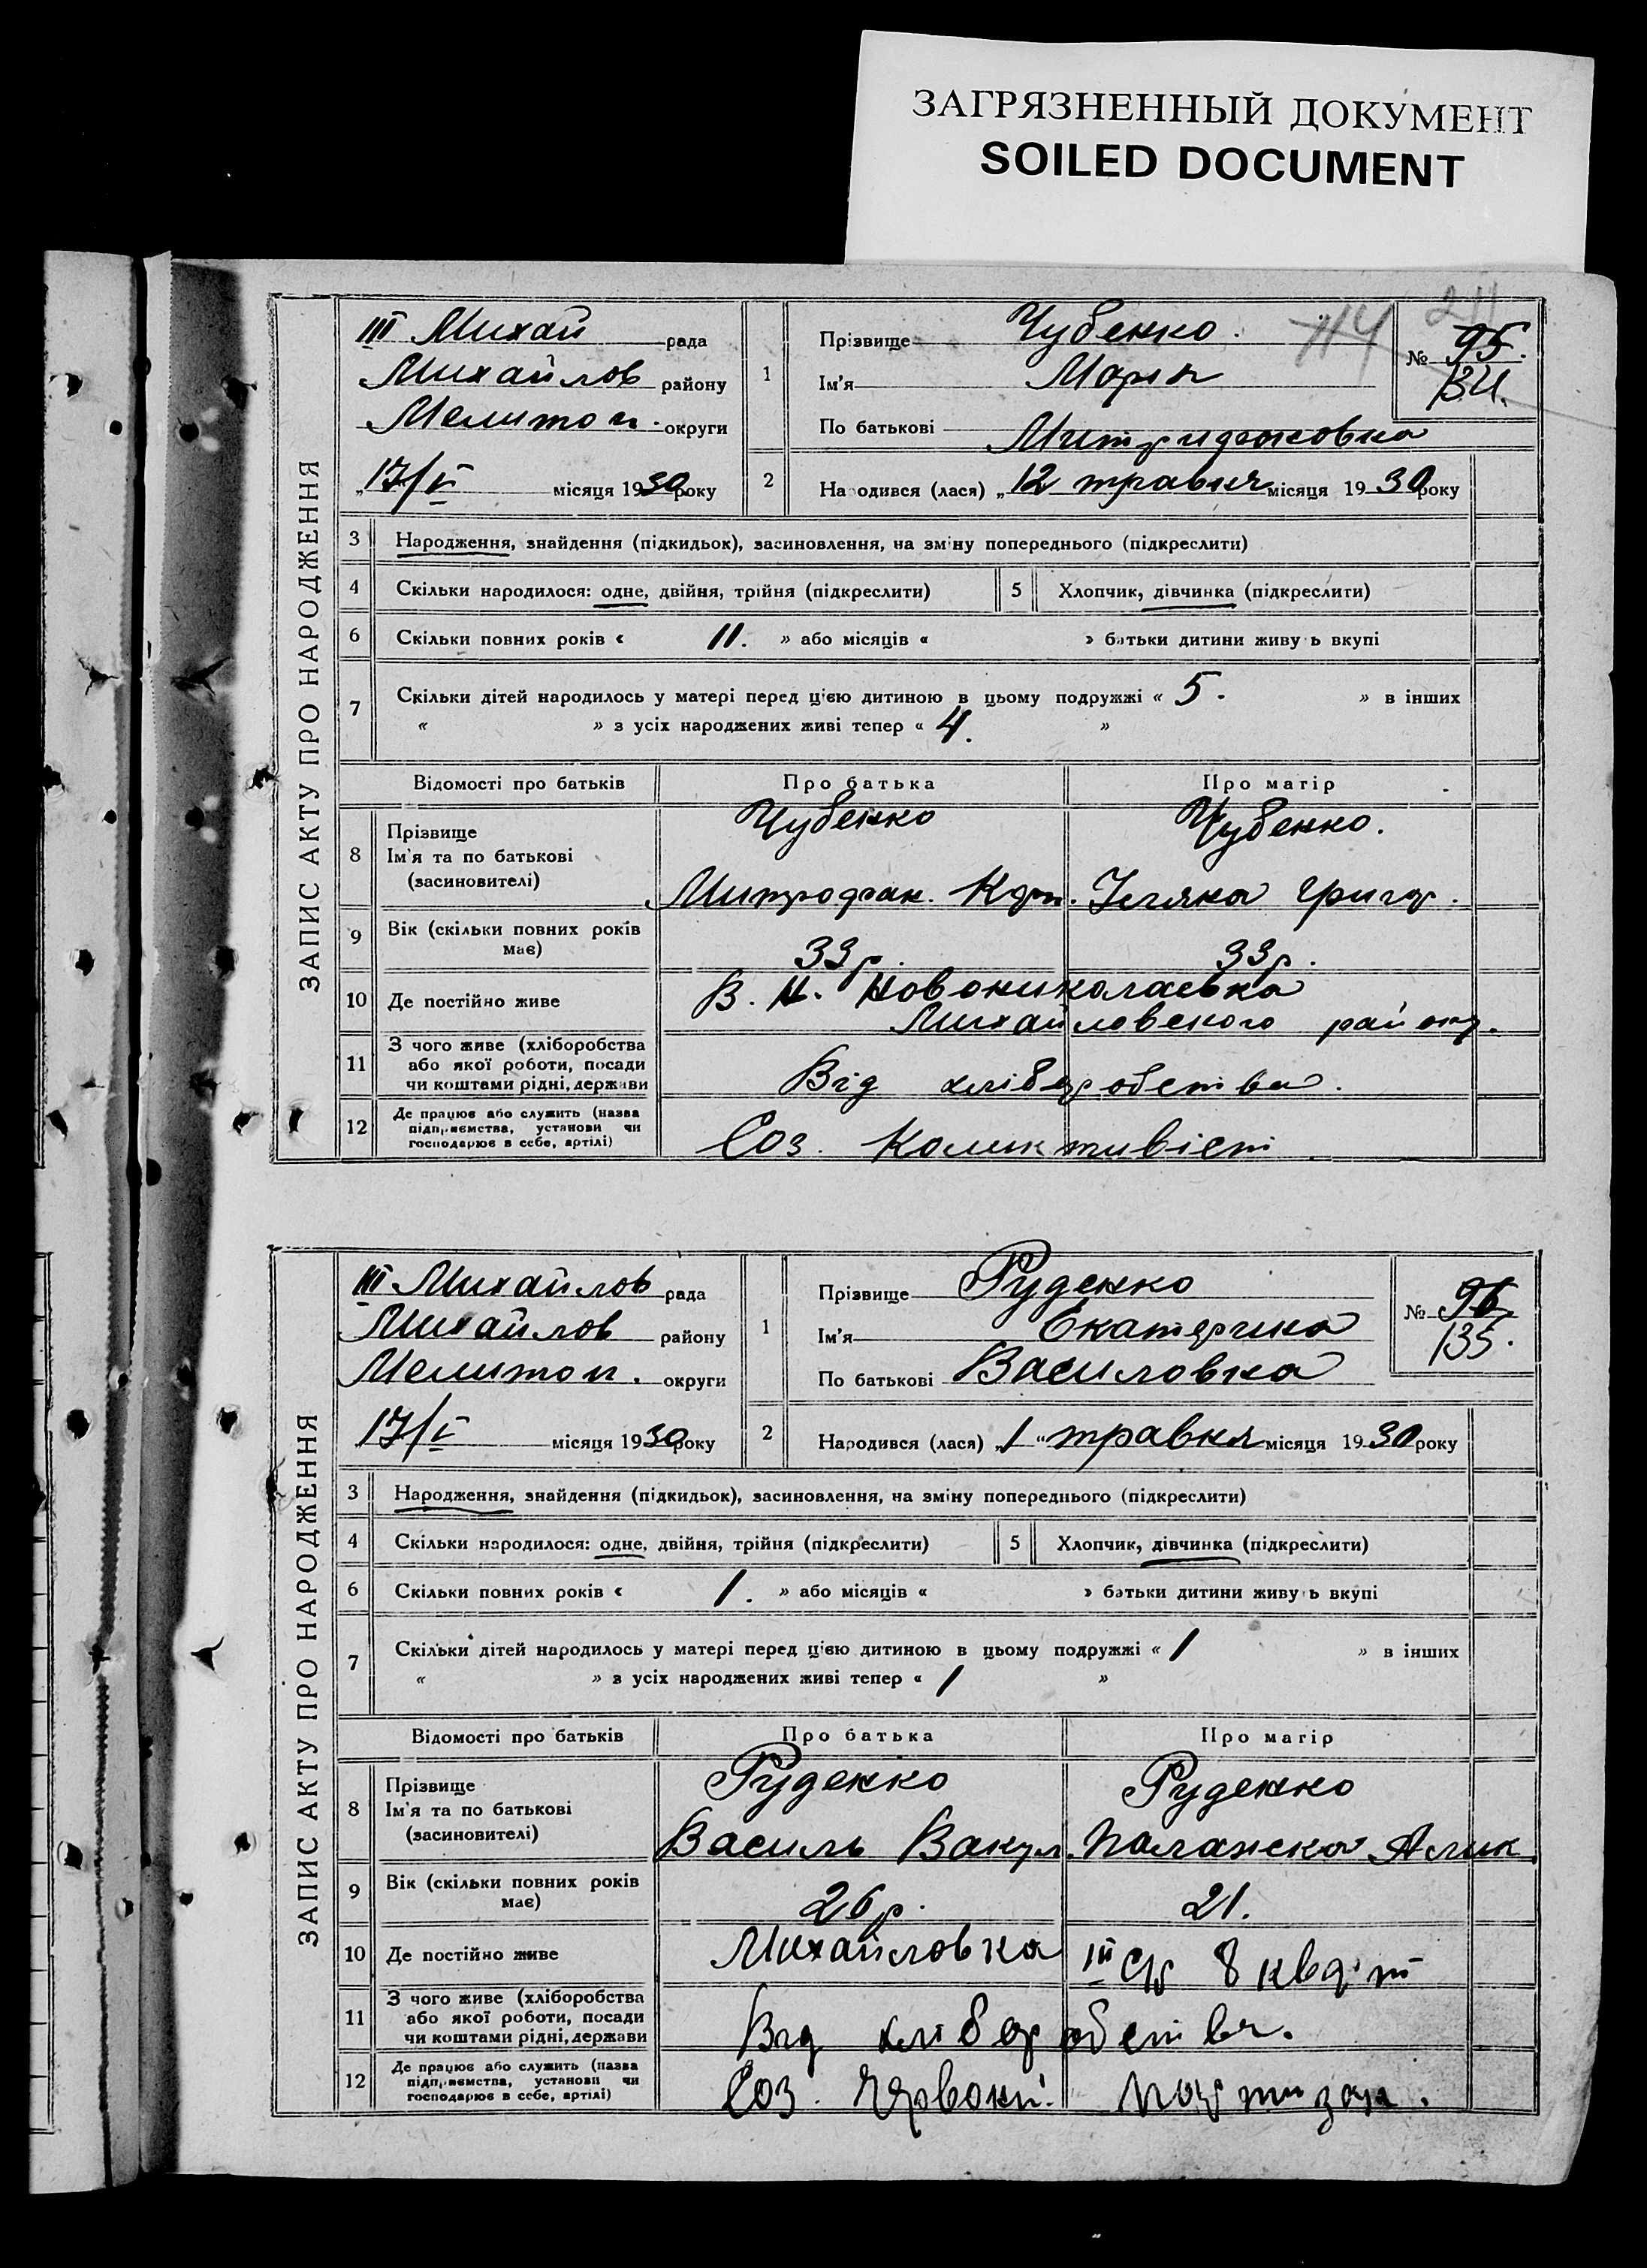 ЗАГРЯЗНЕННЫЙ ДОКУМЕНТ
SOILED DOCUMENT
211
114
ЗАПИС АКТУ ПРО НАРОДЖЕННЯ
III Михай рада
Михайлов району
Мелитоп. округи
„17/V місяця 1930 року
1 Прізвище Чубенко.
Ім'я Марія
По батькові
№ 95.
134.
2 Народився (лася) „12 травня місяця 1930 року
3 Народження, знайдення (підкидьок), засиновлення, на зміну попереднього (підкреслити)
4 Скільки народилося: одне, двійня, трійня (підкреслити) 5 Хлопчик, дівчинка (підкреслити)
6 Скільки повних років « 11. » або місяців « » батьки дитини живуть вкупі
7 Скільки дітей народилось у матері перед цією дитиною в цьому подружжі « 5. » в інших
« » з усіх народжених живі тепер « 4. »
Відомості про батьків Про батька Про матір
8 Прізвище
Ім'я та по батькові
(засиновителі)
Чубенко Чубенко.
Митрофан. Уляна Григор.
9 Вік (скільки повних років
має)
33 р. 33 р.
10 Де постійно живе
В. Н. Новониколаевка
Михайловского району.
11 З чого живе (хліборобства
або якої роботи, посади
чи коштами рідні, держави
Від хліборобства.
12 Де працює або служить (назва
підприємства, установи чи
господарює в себе, артілі)
Соз. Коликтивіст
ЗАПИС АКТУ ПРО НАРОДЖЕННЯ
III Михайлов рада
Михайлов району
Мелитоп. округи
17/V місяця 1930 року
1 Прізвище Руденко
Ім'я Екатерина
По батькові Василовна
№ 96
135.
2 Народився (лася) „1“ травня місяця 1930 року
3 Народження, знайдення (підкидьок), засиновлення, на зміну попереднього (підкреслити)
4 Скільки народилося: одне, двійня, трійня (підкреслити) 5 Хлопчик, дівчинка (підкреслити)
6 Скільки повних років « 1. » або місяців « » батьки дитини живуть вкупі
7 Скільки дітей народилось у матері перед цією дитиною в цьому подружжі « 1 » в інших
« » з усіх народжених живі тепер « 1 »
Відомості про батьків Про батька Про матір
8 Прізвище
Ім'я та по батькові
(засиновителі)
Руденко Руденко
Василь Вакул.
9 Вік (скільки повних років
має)
26 р. 21.
10 Де постійно живе
Михайловка III 8
11 З чого живе (хліборобства
або якої роботи, посади
чи коштами рідні, держави
Від хліборобства.
12 Де працює або служить (назва
підприємства, установи чи
господарює в себе, артілі)
Соз. Червоний партизан.